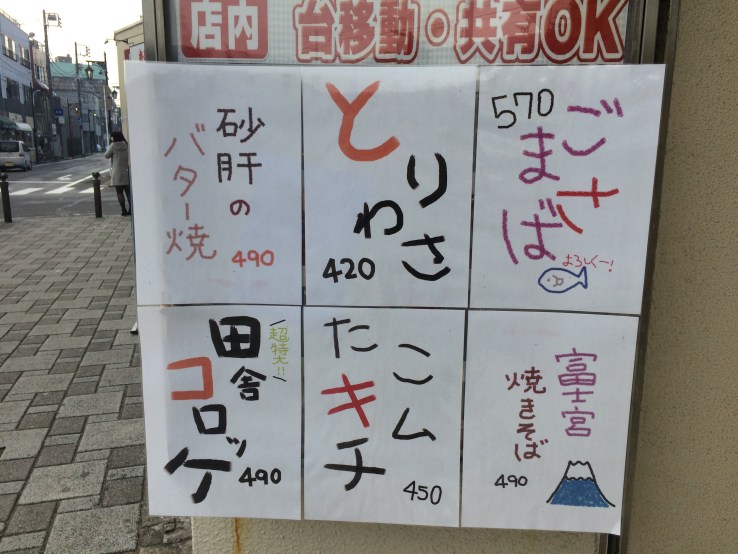 店内
台移動・共有OK
砂肝の
バター焼
490
とりわさ
420
570
ごまさば
よろしくー!
田舎
コロッケ
超特大!!
490
たこキムチ
450
富士宮
焼きそば
490